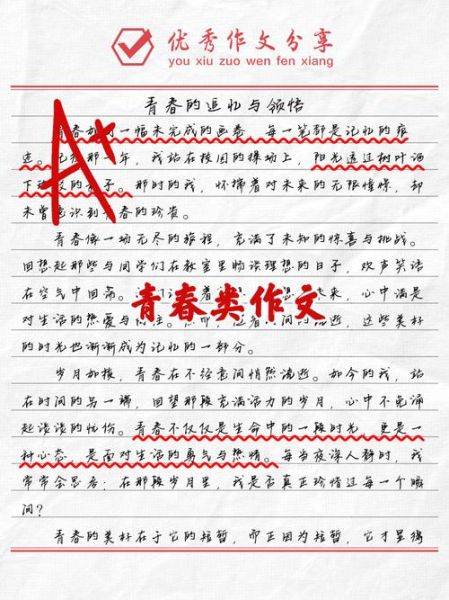 优秀作文分享
you xiu zuo wen fen xiang
青春的追忆与领悟
A+
青春如同一幅未完成的画卷，每一笔都是记忆的痕
迹。记得那一年，我站在校园的操场上，阳光透过树叶洒
下斑驳的影子。那时的我，怀揣着对未来的无限憧憬，却
未曾意识到青春的珍贵。
青春像一场无尽的旅程，充满了未知的惊喜与挑战。
回想起那些与同学们在教室里畅谈理想的日子，欢声笑语
在空气中回荡。我们 着 来，心中满是
青春类作文
对生活的热爱与 。然而， 时间的流逝，这些美好
的时光也渐渐成为记忆的一部分。
岁月如梭，青春在不经意间悄然流逝。如今的我，站
在时间的另一端，回望那段充满活力的岁月，心中不免涌
起淡淡的忧伤。青春不仅仅是生命中的一段时光，更是一
种心态，是面对生活的勇气与热情。每当夜深人静时，我
常常会思考：在那段岁月里，我是否真正珍惜过每一个瞬
间？
青春的美好在于它的短暂，而正因为短暂，它才显得